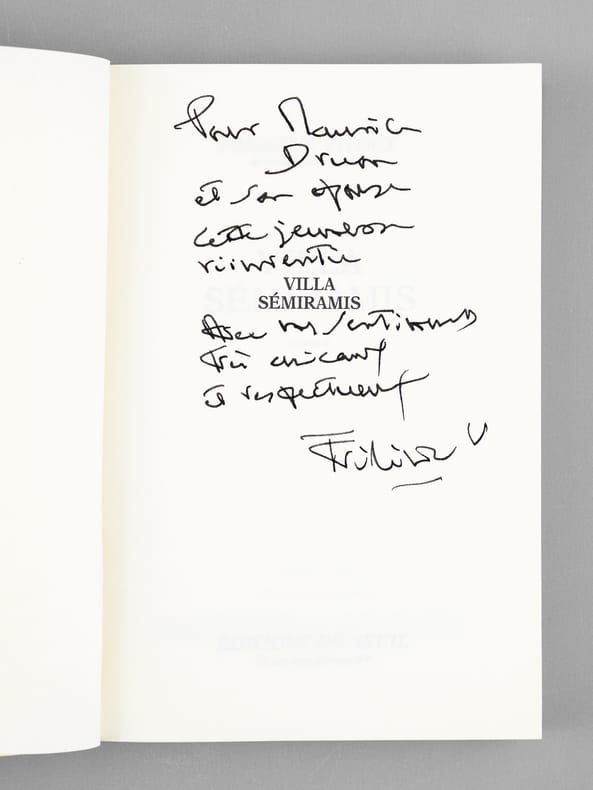 Pour Maurice
Druon
et son épouse
cette jeunesse
réinventée
VILLA
SÉMIRAMIS
Avec mes sentiments
très amicaux
et respectueux
Frédéric V
ÉDITIONS DU SEUIL